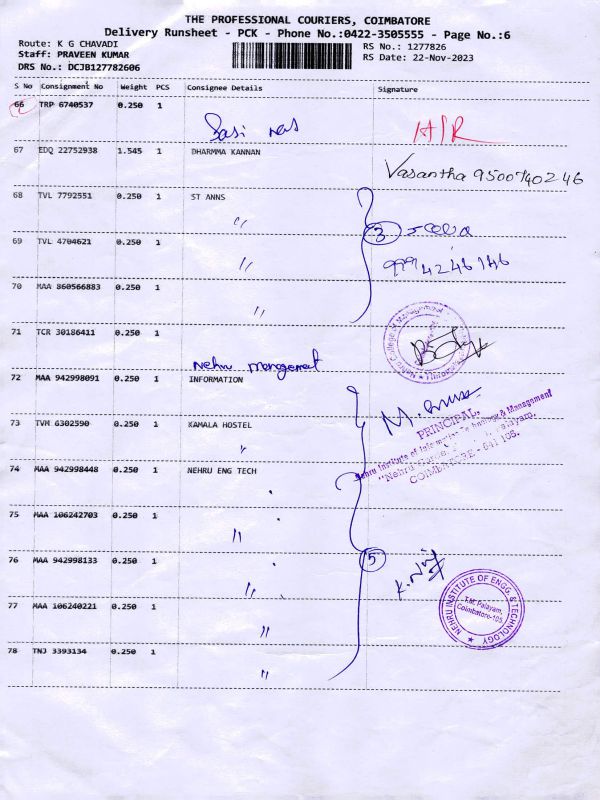 THE PROFESSIONAL COURIERS, COIMBATORE
Delivery Runsheet - PCK - Phone No.:0422-3505555 - Page No.:6
Route: K G CHAVADI
Staff: PRAVEEN KUMAR
DRS No.: DCJB127782606
RS No.: 1277826
RS Date: 22-Nov-2023
S No Consignment No Weight PCS Consignee Details Signature
66 TRP 6740537 0.250 1
Sasi
67 EDQ 22752938 1.545 1 DHARMMA KANNAN
Vasantha 9500740246
68 TVL 7792551 0.250 1 ST ANNS
〃 3
69 TVL 4704621 0.250 1
〃
70 MAA 860566883 0.250 1
〃
71 TCR 30186411 0.250 1
Nehru management
72 MAA 942998091 0.250 1 INFORMATION
PRINCIPAL,
Nehru Institute of Information Technology & Management
COIMBATORE - 641 105.
73 TVM 6302590 0.250 1 KAMALA HOSTEL
74 MAA 942998448 0.250 1 NEHRU ENG TECH
75 MAA 106242703 0.250 1
〃
76 MAA 942998133 0.250 1 5
〃
NEHRU INSTITUTE OF ENGG. & TECHNOLOGY
T.M. Palayam,
Coimbatore-105.
77 MAA 106240221 0.250 1
〃
78 TNJ 3393134 0.250 1
〃